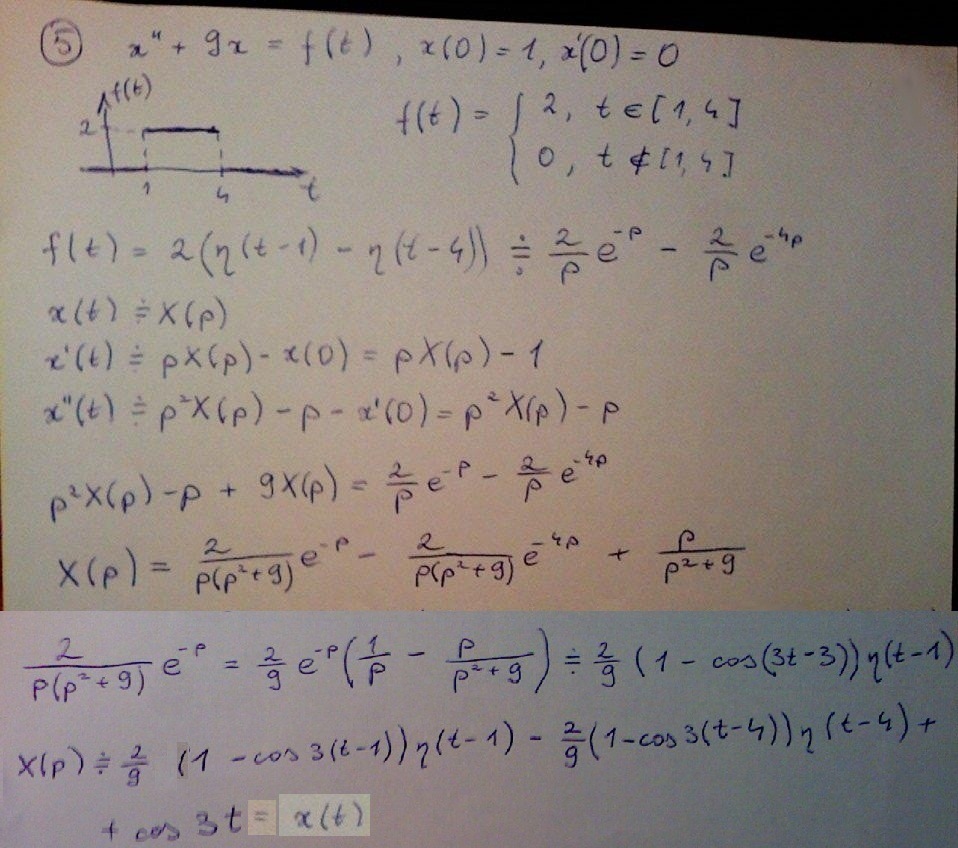 ⑤ x'' + 9x = f(t), x(0) = 1, x'(0) = 0
f(t)
2
1 4 t
f(t) = { 2, t ∈ [1,4]
0, t ∉ [1,4]
f(t) = 2(η(t-1) - η(t-4)) ≑ 2/p e^{-p} - 2/p e^{-4p}
x(t) ≑ X(p)
x'(t) ≑ pX(p) - x(0) = pX(p) - 1
x''(t) ≑ p²X(p) - p - x'(0) = p²X(p) - p
p²X(p) - p + 9X(p) = 2/p e^{-p} - 2/p e^{-4p}
X(p) = 2/(p(p²+9)) e^{-p} - 2/(p(p²+9)) e^{-4p} + p/(p²+9)
2/(p(p²+9)) e^{-p} = 2/9 e^{-p} (1/p - p/(p²+9)) ≑ 2/9 (1 - cos(3t-3)) η(t-1)
X(p) ≑ 2/9 (1 - cos 3(t-1)) η(t-1) - 2/9 (1 - cos 3(t-4)) η(t-4) +
+ cos 3t = x(t)